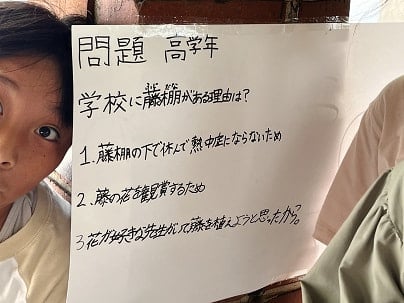 問題 高学年
学校に藤棚がある理由は?
1.藤棚の下で休んで熱中症にならないため
2.藤の花を観賞するため
3花が好きな先生がいて藤を植えようと思ったから。